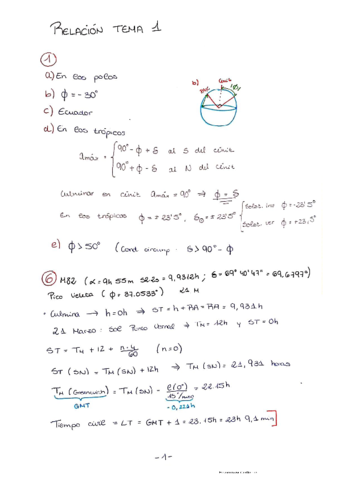 RELACIÓN TEMA 1
①
a) En los polos
b) ϕ = -30°
c) Ecuador
d) En los trópicos
b)
cénit
amáx = { 90° - ϕ + δ al S del cénit
90° + ϕ - δ al N del cénit
Culminar en cénit amáx = 90° → ϕ = δ
En los trópicos ϕ = ± 23'5°, δ⊙ = ± 23'5° { Solst. inv ϕ = -23'5°
Solst. ver ϕ = +23,5°
e) ϕ > 50° (Cond circump. δ > 90° - ϕ
⑥ M82 (α = 9h 55m 52.2s = 9,9312h ; δ = 69° 40' 47" = 69,6797°)
Pico Veleta (ϕ = 37.0583°) 21 M
• Culmina → h = 0h ⇒ ST = h + RA = RA = 9,931h
21 Marzo: Sol Punto Vernal → TM = 12h y ST = 0h
ST = TM + 12 + n·4/60 (n=0)
ST (SN) = TM (SN) + 12h ⇒ TM (SN) = 21,931 horas
TM (Greenwich) = TM (SN) - ℓ(0°)/15°/hora = 22.15h
GMT
-0,221h
Tiempo civil = LT = GMT + 1 = 23.15h = 23h 9,1 min
-1-